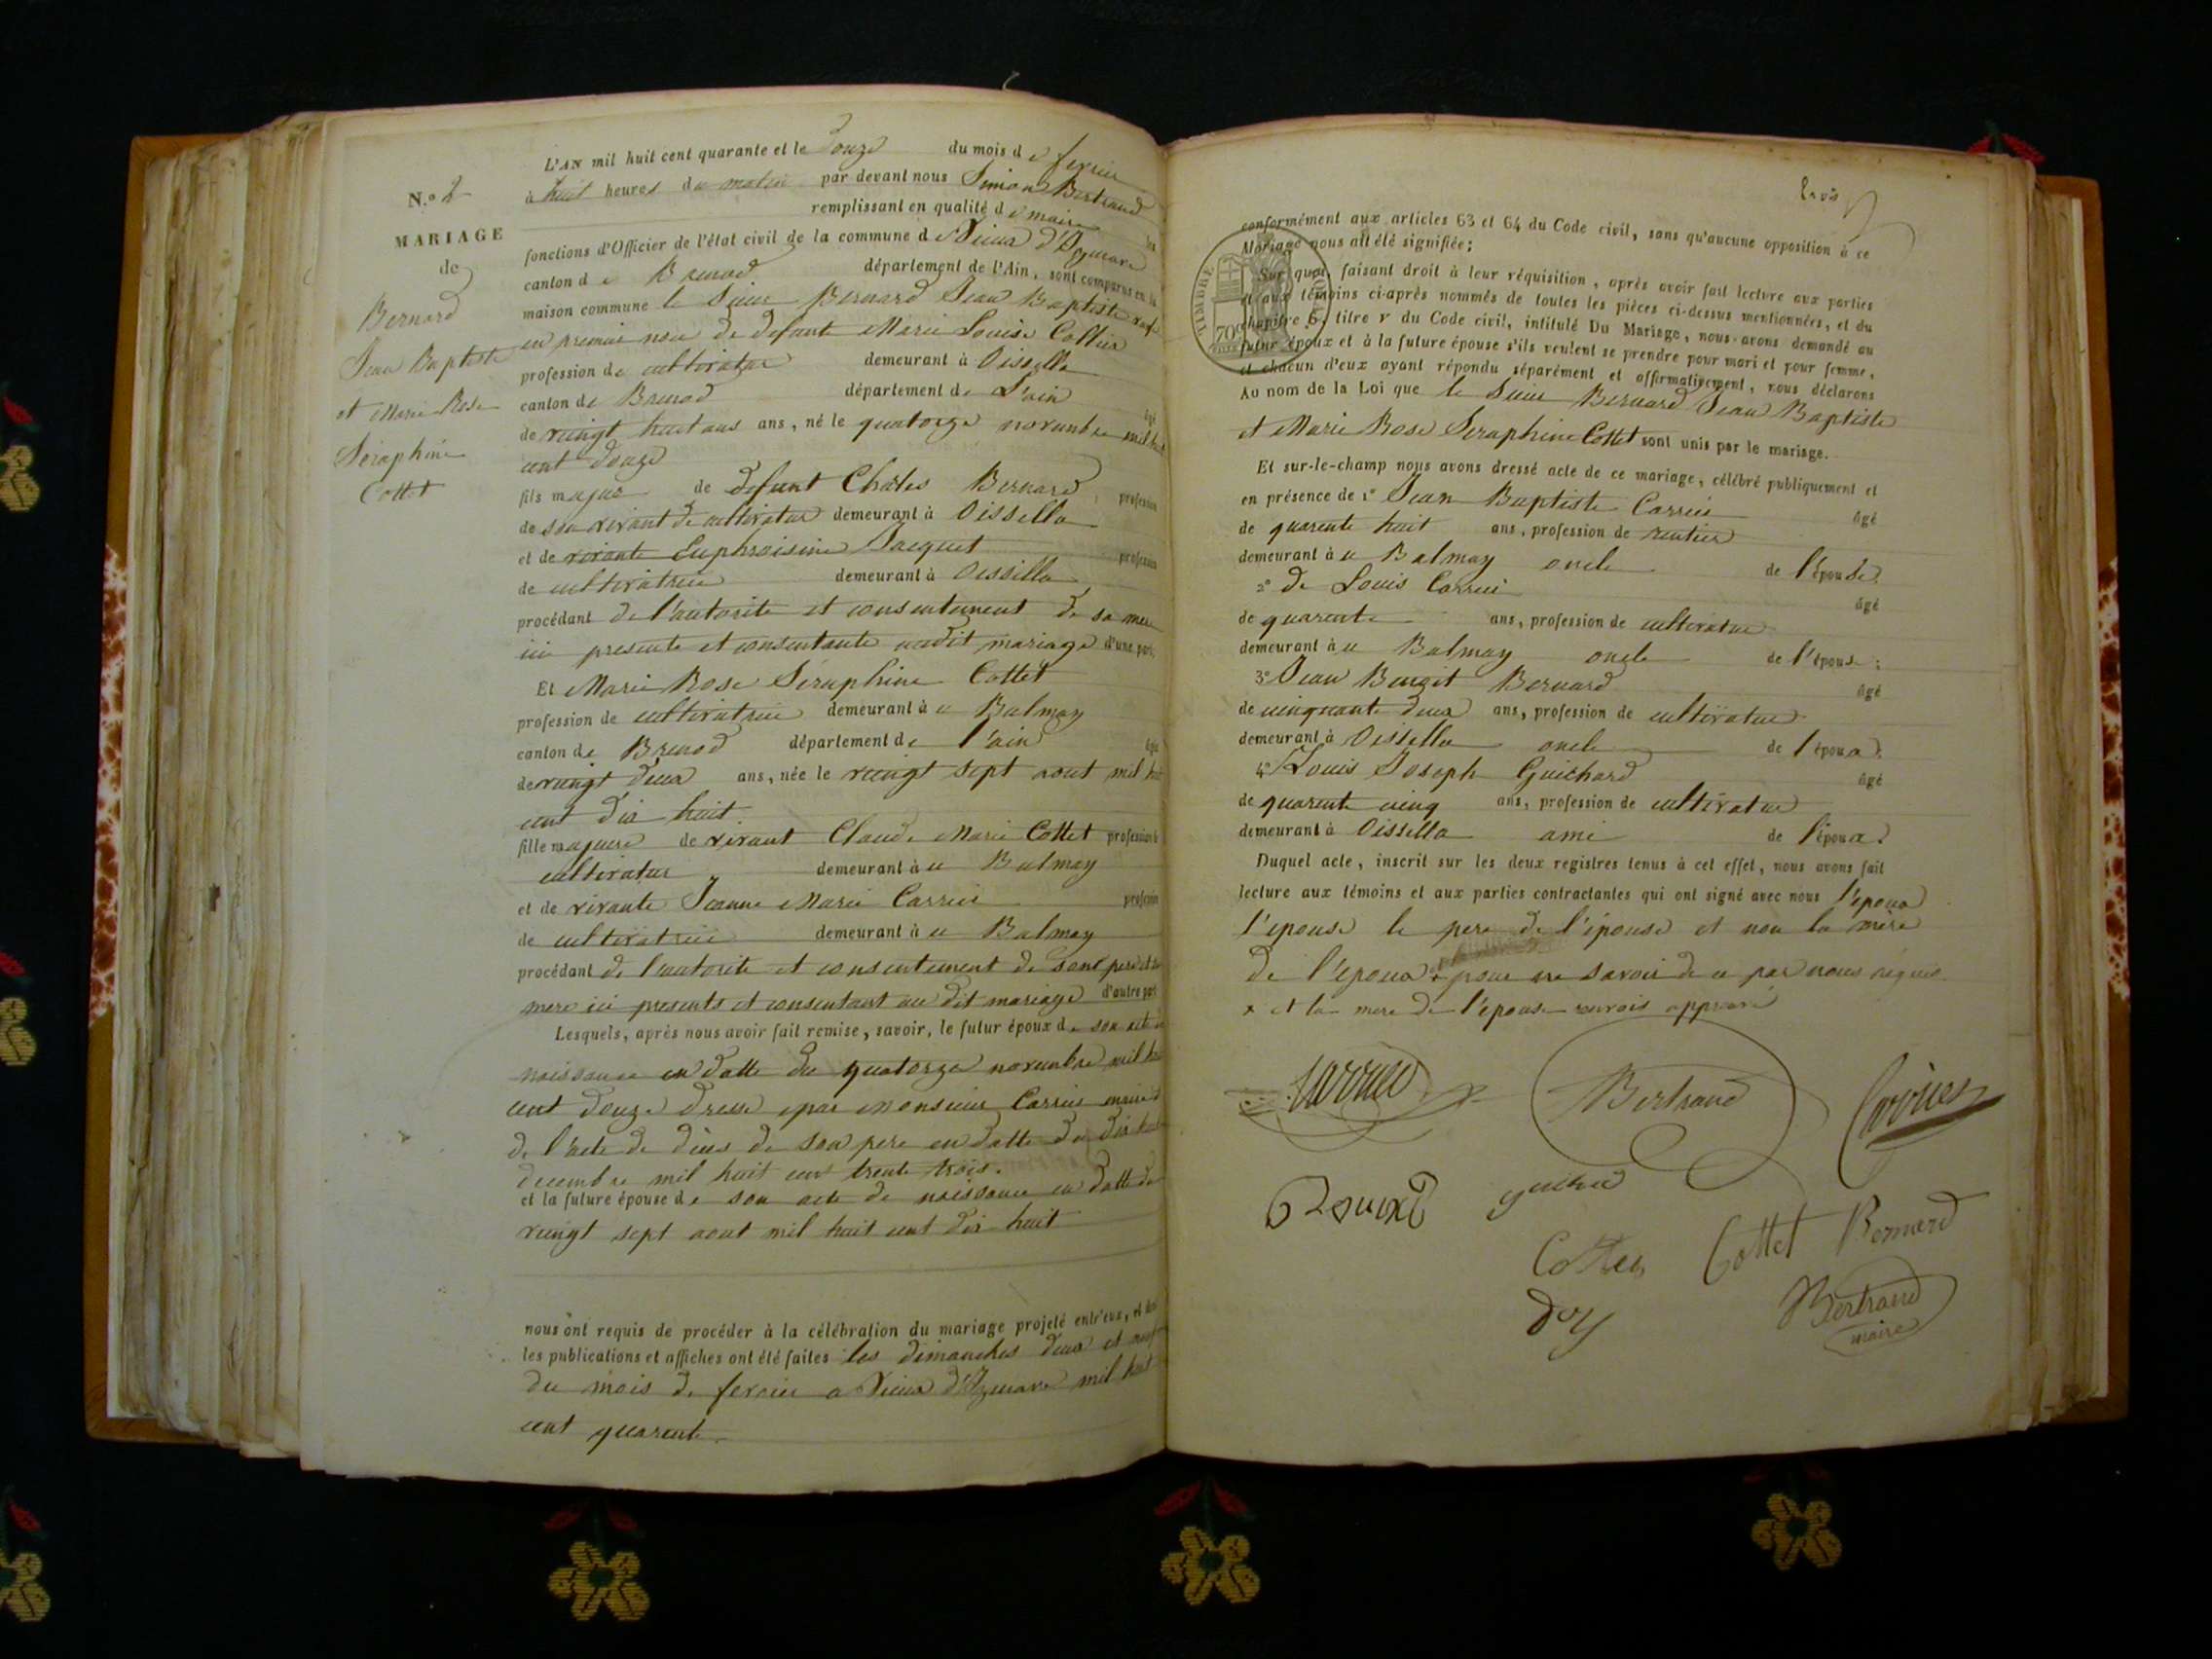 L'AN mil huit cent quarante et le douze du mois de fevrier
N.o 2
à huit heures du matin par devant nous Simon Bertrand
remplissant en qualité de maire les
MARIAGE
fonctions d'Officier de l'état civil de la commune de Vieux d'Izenave
de
canton de Brenod département de l'Ain, sont comparus en la
maison commune le Sieur Bernard Jean Baptiste veuf
Bernard
en premier noce de defunte Marie Louise
Jean Baptiste
profession de cultivateur demeurant à Oissella
et Marie Rose
canton de Brenod département de L'ain âgé
Séraphine
de vingt huit ans ans, né le quatorze novembre mil huit
cent douze
Cottet
fils majeur de defunt Charles Bernard, profession
de son vivant de cultivateur demeurant à Oissella
et de vivante Euphroisine Jacquet profession
de cultivatrice demeurant à Oissella
procédant de l'autorite et consentement de sa mere
ici presente et consentante audit mariage d'une part.
Et Marie Rose Séraphine Cottet
profession de cultivatrice demeurant à u Balmay
canton de Brenod département de l'ain âgée
de vingt deux ans, née le vingt sept aout mil huit
cent dix huit
fille majeure de vivant Claude Marie Cottet profession de
cultivateur demeurant à u Balmay
et de vivante Jeanne Marie Carrier profession
de cultivatrice demeurant à u Balmay
procédant de l'autorite et consentement de son pere et sa
mere ici presents et consentant au dit mariage d'autre part
Lesquels, après nous avoir fait remise, savoir, le futur époux de son acte de
naissance en datte du quatorze novembre mil huit
cent douze dressé par monsieur Carrier maire
de l'acte de décès de son pere en datte du dix huit
decembre mil huit cent trente trois.
et la future épouse de son acte de naissance en datte du
vingt sept aout mil huit cent dix huit
nous ont requis de procéder à la célébration du mariage projeté entr'eux, et dont
les publications et affiches ont été faites les dimanches deux et neuf
du mois de fevrier a Vieux d'Izenave mil huit
cent quarente
conformément aux articles 63 et 64 du Code civil, sans qu'aucune opposition à ce
Mariage nous ait été signifiée;
Sur quoi, faisant droit à leur réquisition, après avoir fait lecture aux parties
et aux témoins ci-après nommés de toutes les pièces ci-dessus mentionnées, et du
chapitre 6, titre V du Code civil, intitulé Du Mariage, nous avons demandé au
futur époux et à la future épouse s'ils veulent se prendre pour mari et pour femme,
et chacun d'eux ayant répondu séparément et affirmativement, nous déclarons
TIMBRE ROYAL
70c
AU nom de la Loi que le Sieur Bernard Jean Baptiste
et Marie Rose Seraphine Cottet sont unis par le mariage.
Et sur-le-champ nous avons dressé acte de ce mariage, célébré publiquement et
en présence de 1° Jean Baptiste Carrier âgé
de quarente huit ans, profession de rentier
demeurant à u Balmay oncle de l'épouse.
2° de Louis Carrier âgé
de quarente ans, profession de cultivateur
demeurant à u Balmay oncle de l'épouse;
3° Jean Benoit Bernard âgé
de cinquante deux ans, profession de cultivateur
demeurant à Oissella oncle de l'époux;
4° Louis Joseph Guichard âgé
de quarente cinq ans, profession de cultivateur
demeurant à Oissella ami de l'époux.
Duquel acte, inscrit sur les deux registres tenus à cet effet, nous avons fait
lecture aux témoins et aux parties contractantes qui ont signé avec nous l'époux
l'epouse le pere de l'épouse et non la mère
de l'époux x pour ne savoir de ce par nous requis
x et la mere de l'épouse renvois approuvé
Carrier
Bertrand
Carrier
Cottet Bernard
Bertrand
maire